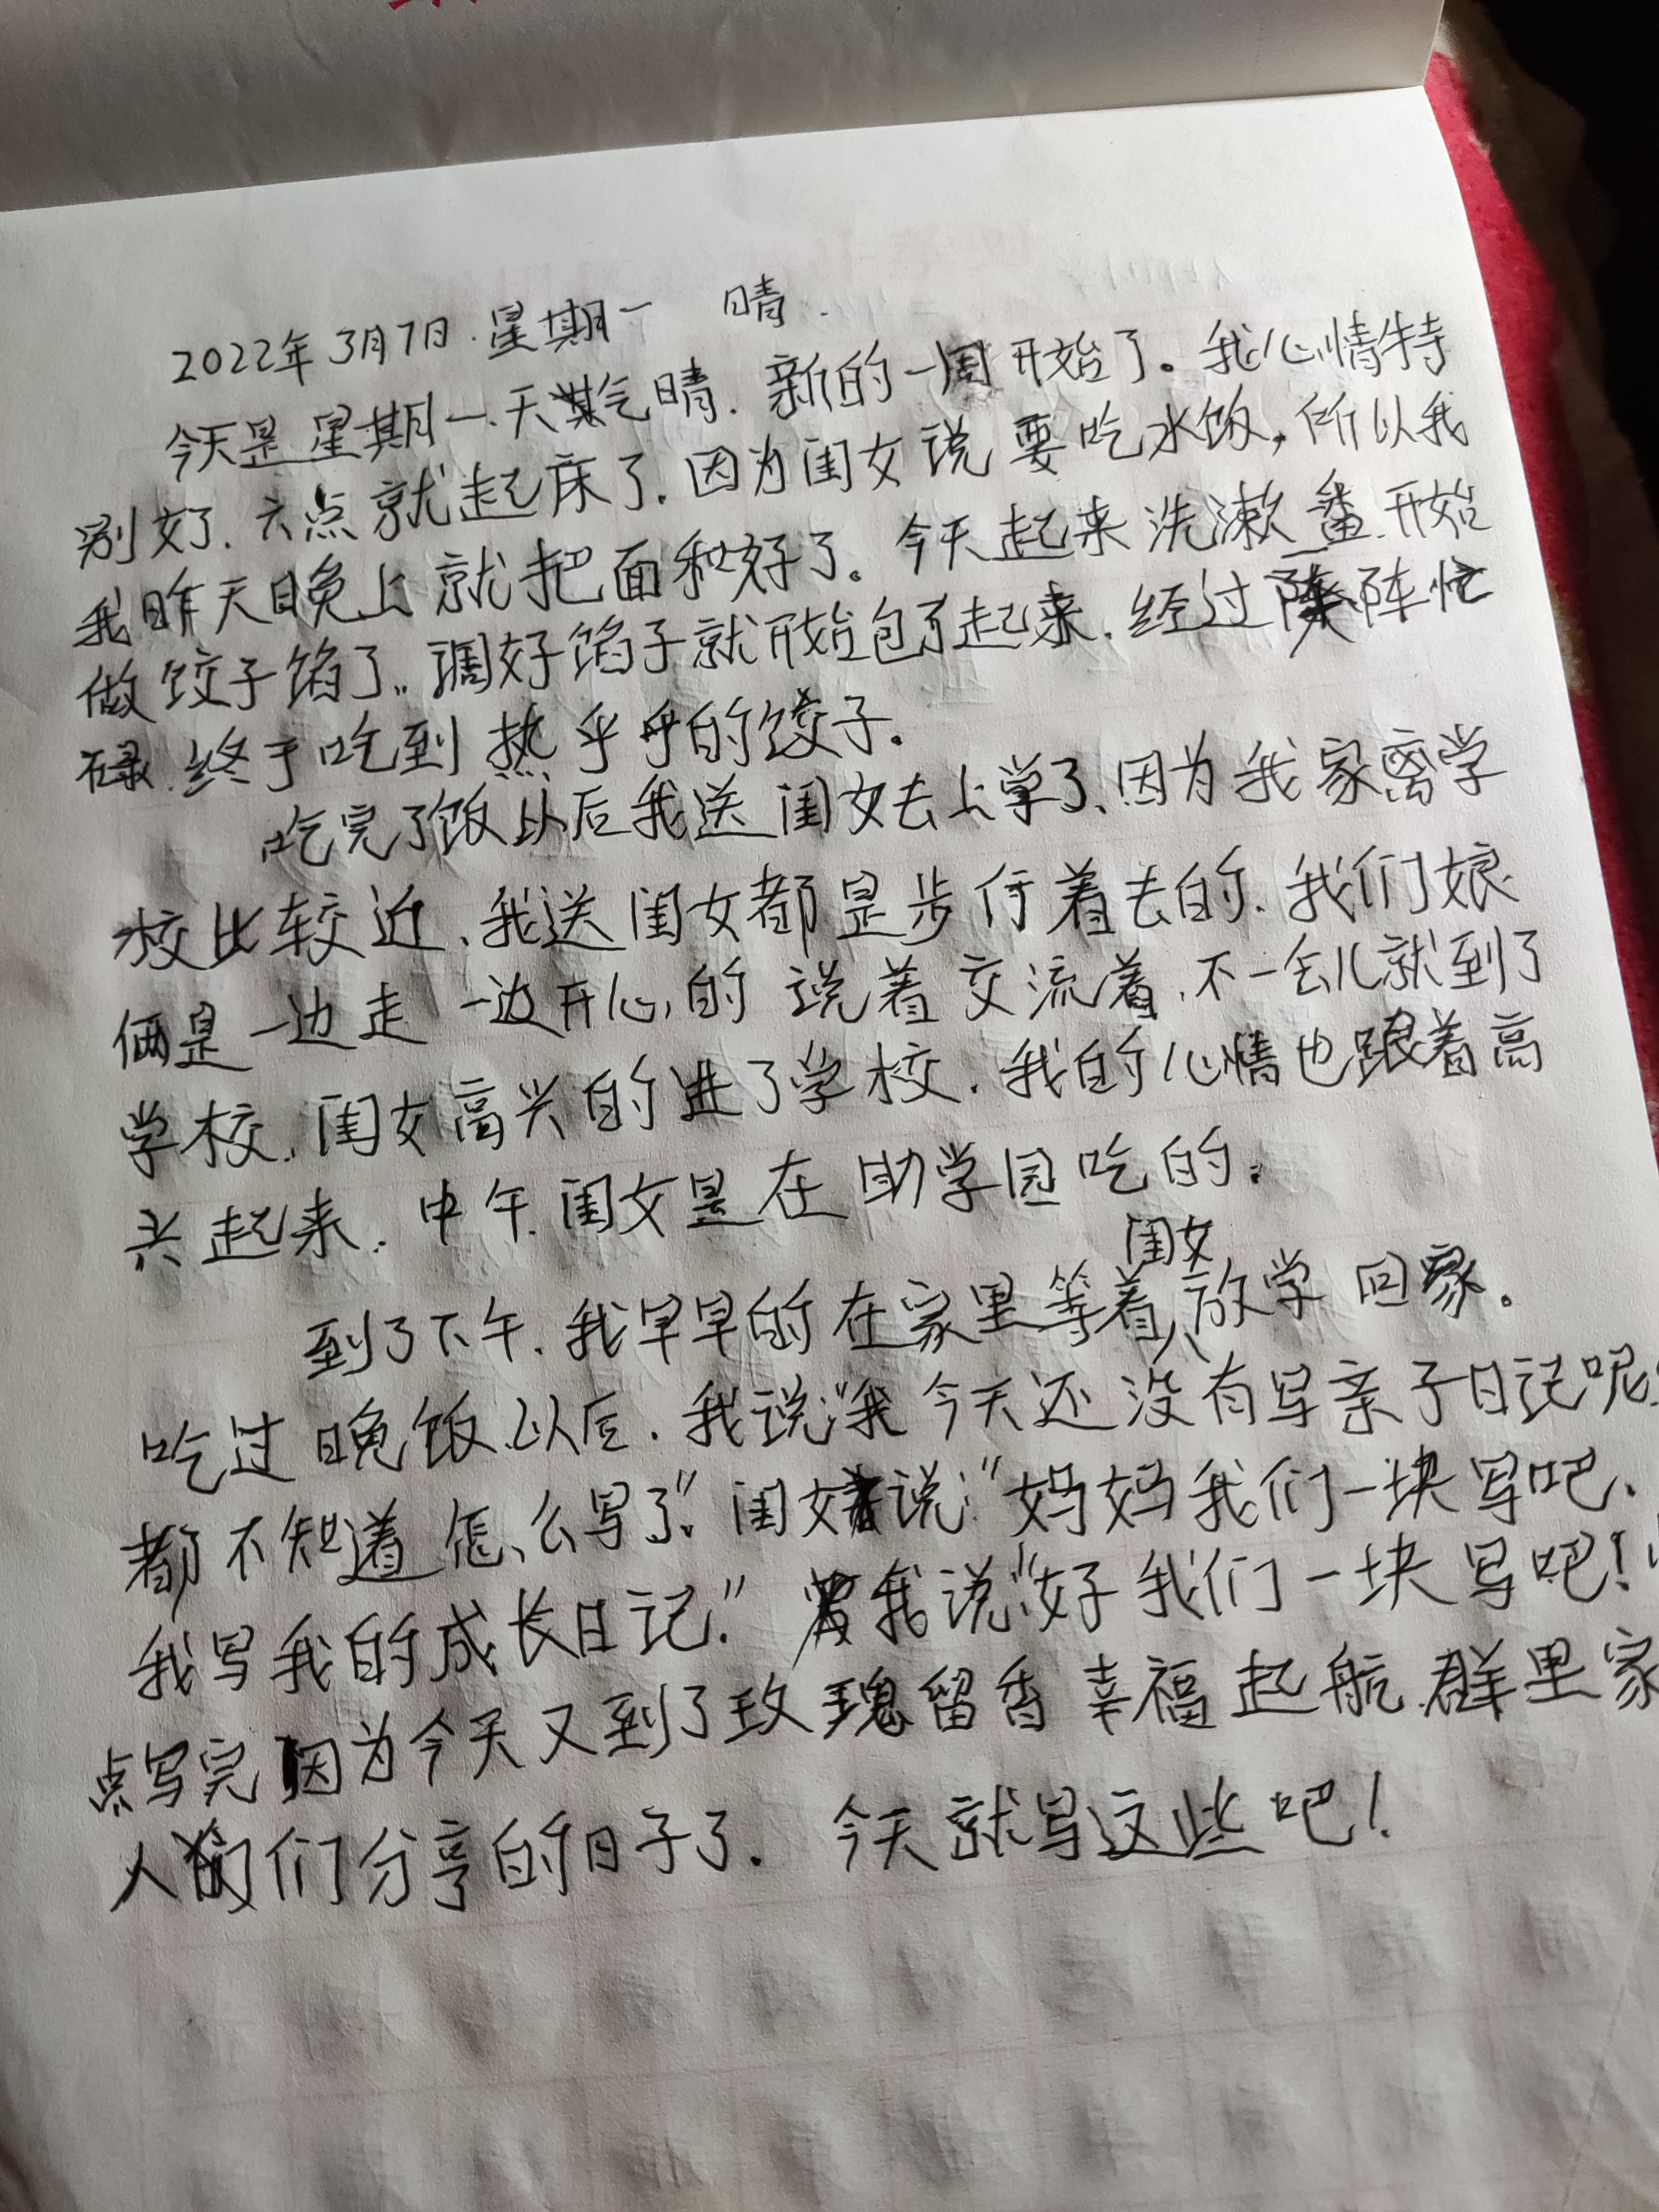 2022年3月7日.星期一 晴.
今天是星期一.天气晴.新的一周开始了。我心情特
别好了.六点就起床了.因为闺女说要吃水饭,所以我
我昨天晚上就把面和好了。今天起来洗漱一番.开始
做饺子馅了..调好馅子就开始包了起来.经过阵阵忙
碌.终于吃到热乎乎的饺子。
吃完了饭以后我送闺女去上学了、因为我家离学
校比较近、我送闺女都是步行着去的.我们娘
俩是一边走一边开心的说着交流着.不一会儿就到了
学校.闺女高兴的进了学校.我的心情也跟着高
兴起来.中午.闺女是在助学园吃的。
到了下午.我早早的在家里等着闺女放学回家。
吃过晚饭以后.我说:“我今天还没有写亲子日记呢
都不知道怎么写了.”闺女说:“妈妈我们一块写吧.
我写我的成长日记.”我说:“好我们一块写吧!
点写完因为今天又到了玫瑰留香幸福起航.群里家
人们分享的日子了. 今天就写这些吧!